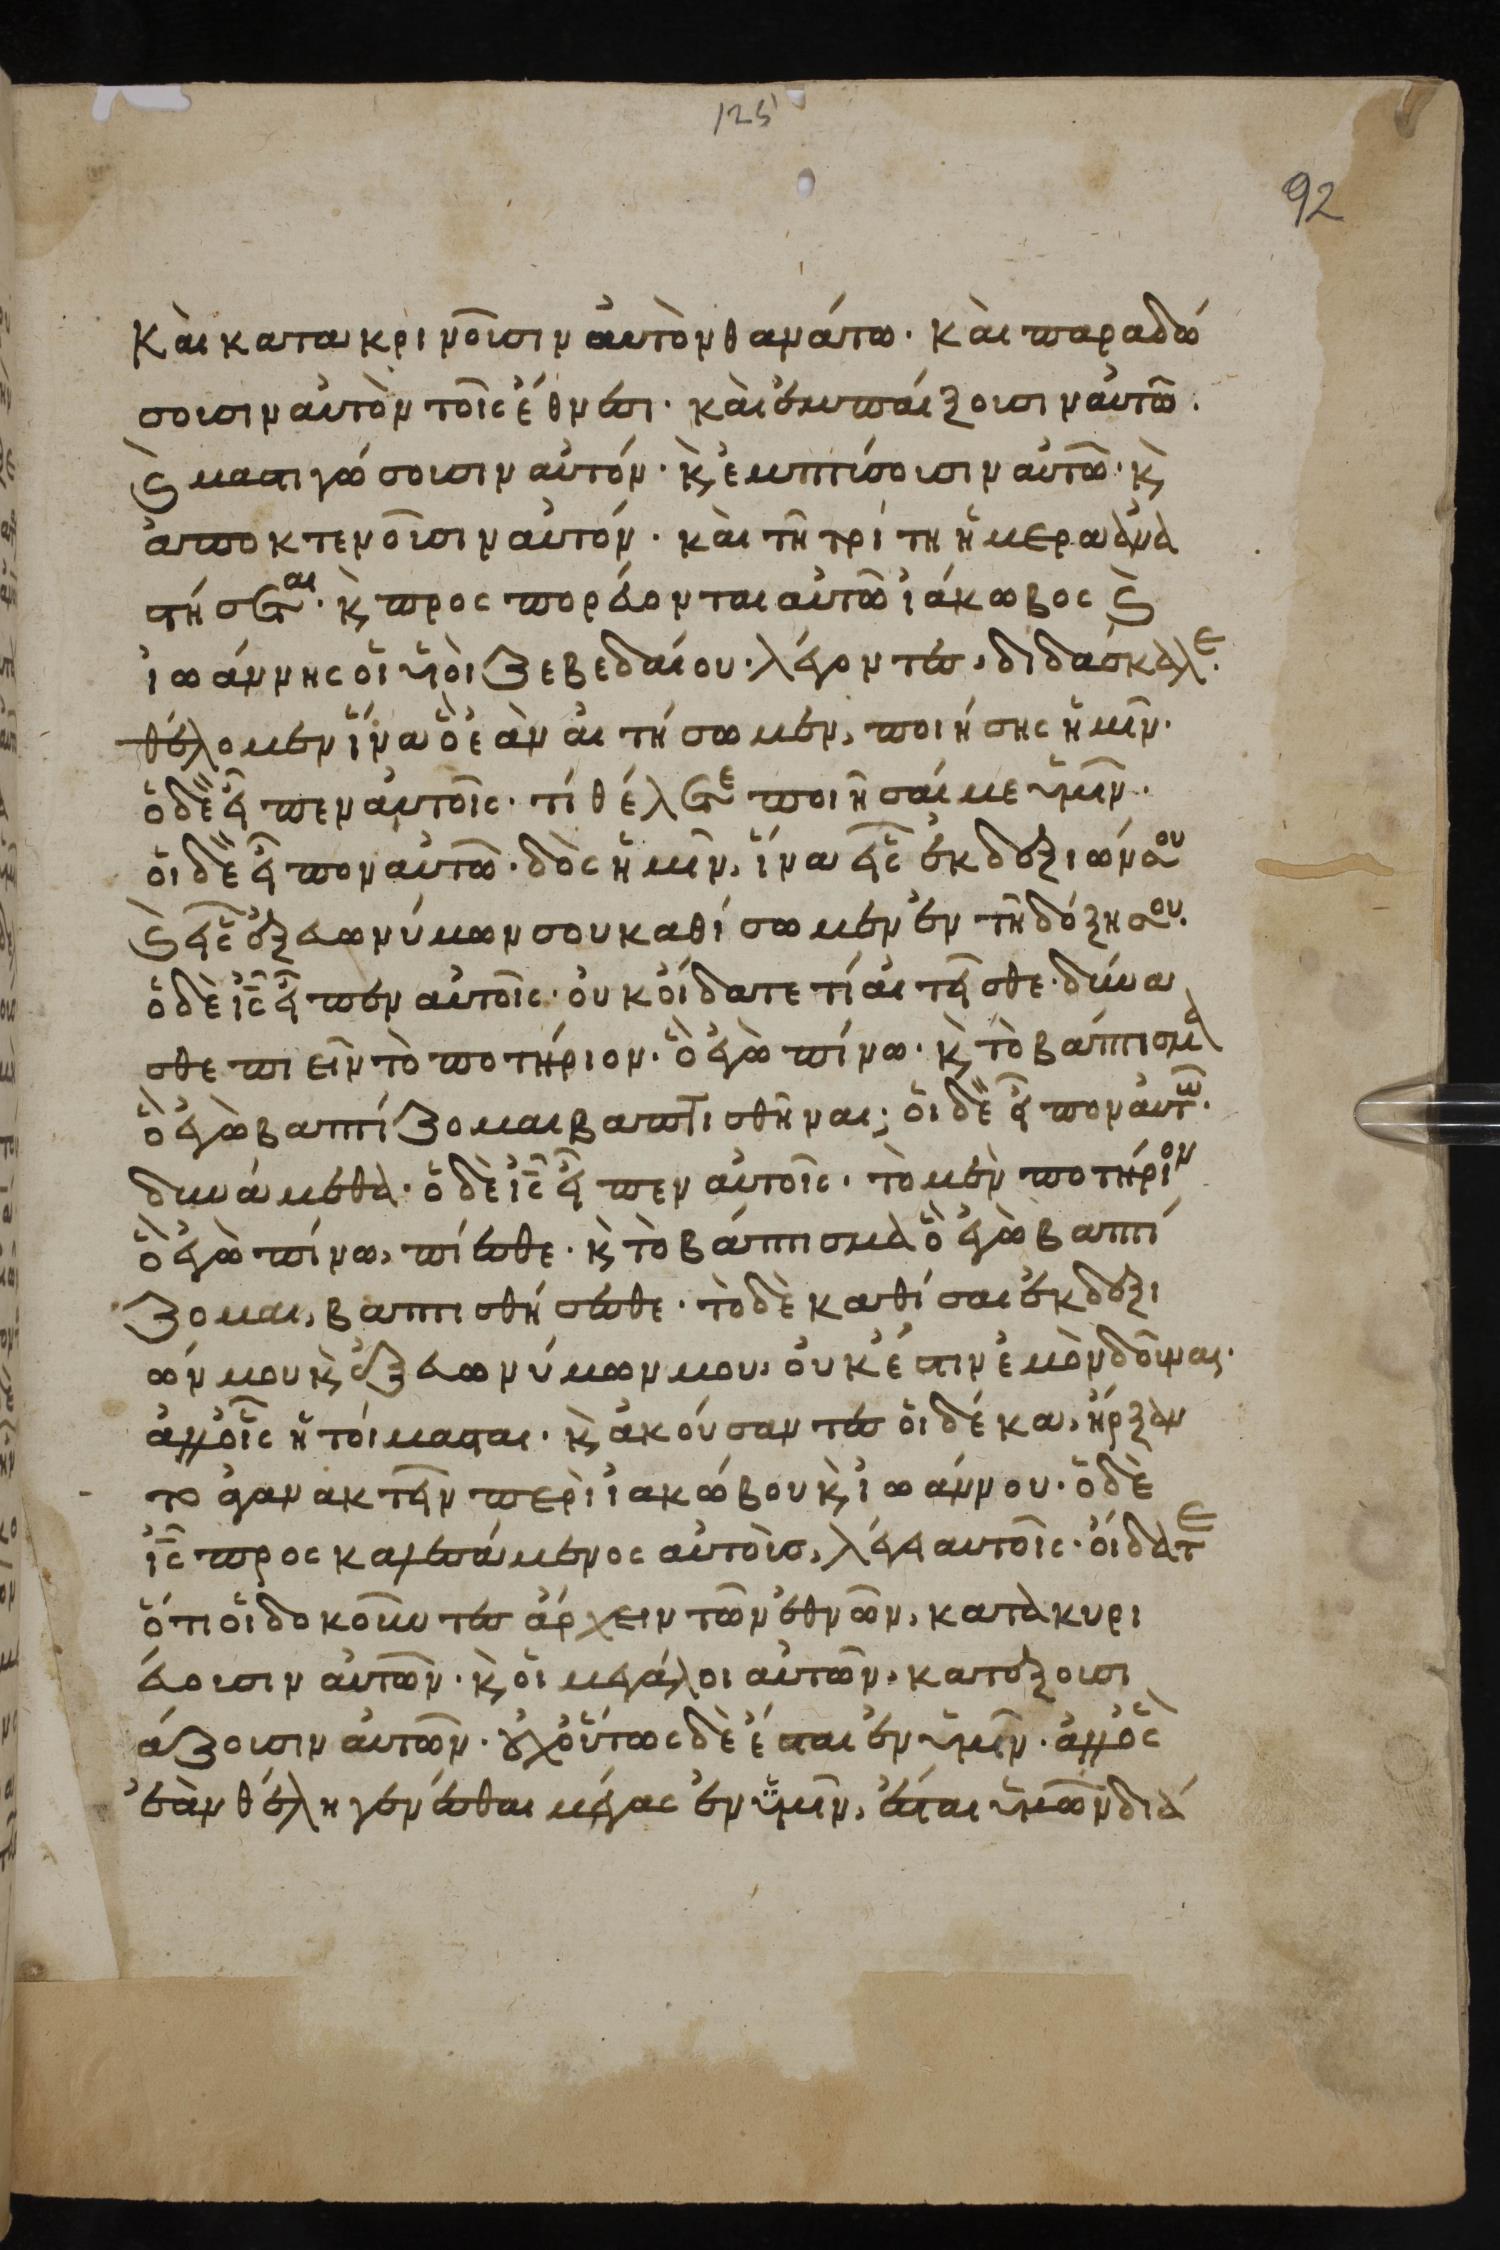 125
92
Κὰι κατακρινοῦσιν ἀυτὸν θανάτω· κὰι παραδώ
σουσιν ἀυτὸν τοῖς ἔθνεσι· κὰι ἐμπαίξουσιν ἀυτῶ.
κ̀ μαστιγώσουσιν ἀυτόν· κ̀ ἐμπτύσουσιν ἀυτῶ· κ̀
ἀποκτενοῦσιν ἀυτόν· κὰι τῆ τρίτη ἡμερα ἀνα
στήσεται· κ̀ προσπορέυονται ἀυτῶ ἰάκωβος κ̀
ἰωάννης ὁι υἱὸι ζεβεδαίου· λέγοντες, διδάσκαλε.
θέλομεν ἵνα ὃ ἐὰν ἀιτήσωμεν, ποιήσης ἡμῖν·
ὁ δὲ εἶπεν ἀυτοῖς· τί θέλετε ποιῆσαί με ὑμῖν·
ὁι δὲ εἶπον ἀυτῶ· δὸς ἡμῖν, ἵνα εἷς ἐκ δεξιών σου
κ̀ εἷς ἐξ ευωνύμων σου καθίσωμεν ἐν τῆ δόξη σου.
ὁ δὲ ἰς εἶπεν ἀυτοῖς· ὀυκ ὀίδατε τί ἀιτεῖσθε· δύνα
σθε πιεῖν τὸ ποτήριον· ὃ ἐγὼ πίνω· κ̀ τὸ βάπτισμα
ὃ ἐγὼ βαπτίζομαι βαπτισθῆναι; ὁι δὲ εἶπον ἀυτῶ·
δυνάμεθα· ὁ δὲ ἰς εἶπεν ἀυτοῖς· τὸ μὲν ποτήριον
ὃ ἐγὼ πίνω, πίεσθε· κ̀ τὸ βάπτισμα ὃ ἐγὼ βαπτί
ζομαι, βαπτισθήσεσθε· τὸ δὲ καθίσαι ἐκ δεξι
ών μου κ̀ ἐξ ευωνύμων μου, ὀυκ ἔστιν ἐμὸν δοῦναι·
ἀλλ οἷς ἡτοίμασται· κ̀ ἀκούσαντες ὁι δέκα, ἤρξαν
το ἀγανακτεῖν περὶ ἰακώβου κ̀ ἰωάννου· ὁ δὲ
ἰς προσκαλεσάμενος ἀυτὸυσ, λέγει αυτοῖς· ὀίδατε
ὅτι ὁι δοκοῦντες άρχειν τῶν ἐθνῶν, κατακυρι
έυουσιν ἀυτῶν· κ̀ ὁι μεγάλοι ἀυτῶν, κατεξουσι
άζουσιν ἀυτῶν· οὐχ ὅυτως δὲ ἔσται ἐν ὑμῖν· ἀλλ ὃς
ἐὰν θέλη γενέσθαι μέγας ἐν ὑμῖν, ἔσται ὑμῶν διά